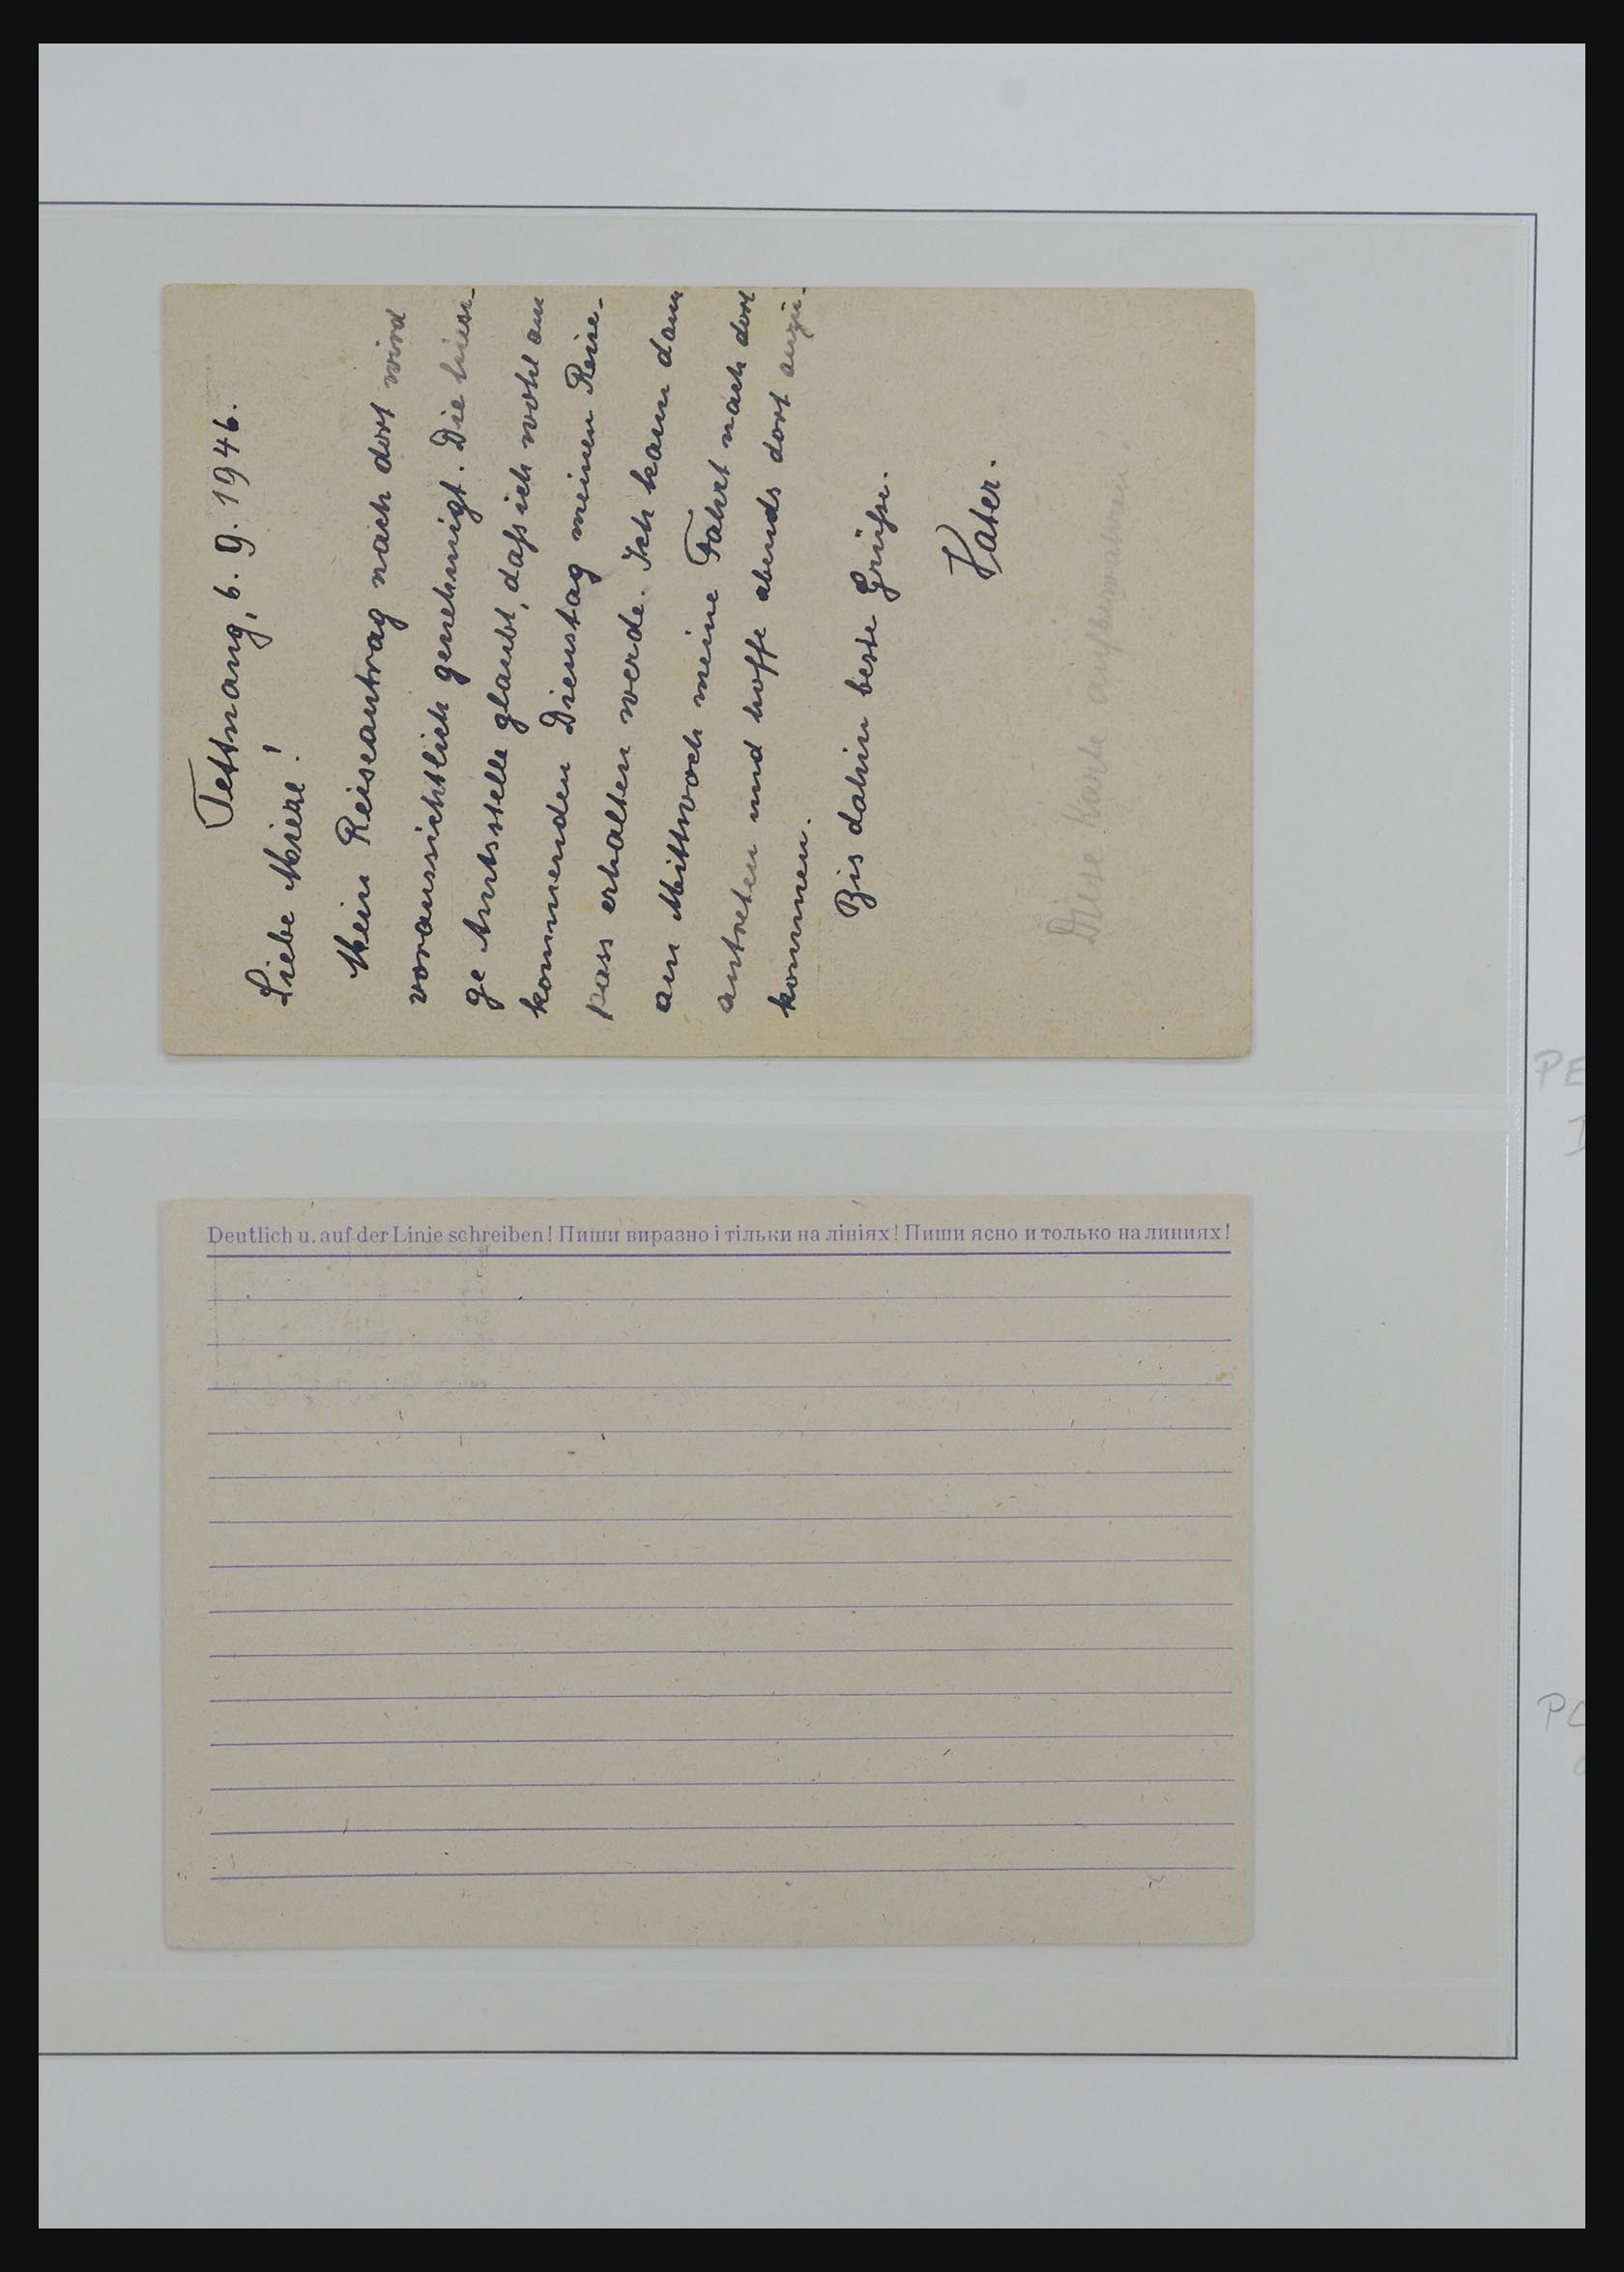 Tettnang, 6. 9. 1946.
Liebe Mieze!
Mein Reiseantrag nach dort wird
voraussichtlich genehmigt. Die hiesi-
ge Amtsstelle glaubt, daß ich wohl am
kommenden Dienstag meinen Reise-
pass erhalten werde. Ich kann dann
am Mittwoch meine Fahrt nach dort
antreten und hoffe abends dort anzu-
kommen.
Bis dahin beste Grüße.
Vater.
Diese Karte aufbewahren.
Deutlich u. auf der Linie schreiben! Пиши виразно і тільки на лініях! Пиши ясно и только на линиях!
PE
PO